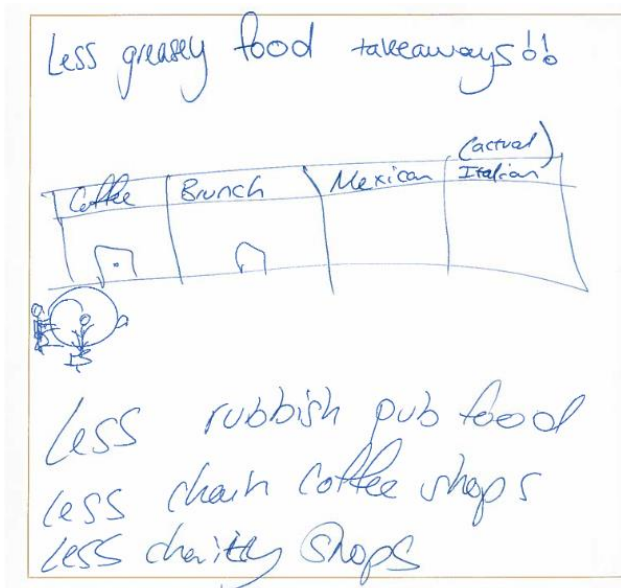 Less greasey food takeaways!!
(actual)
Coffee Brunch Mexican Italian
Less rubbish pub food
Less chain coffee shops
Less charity shops